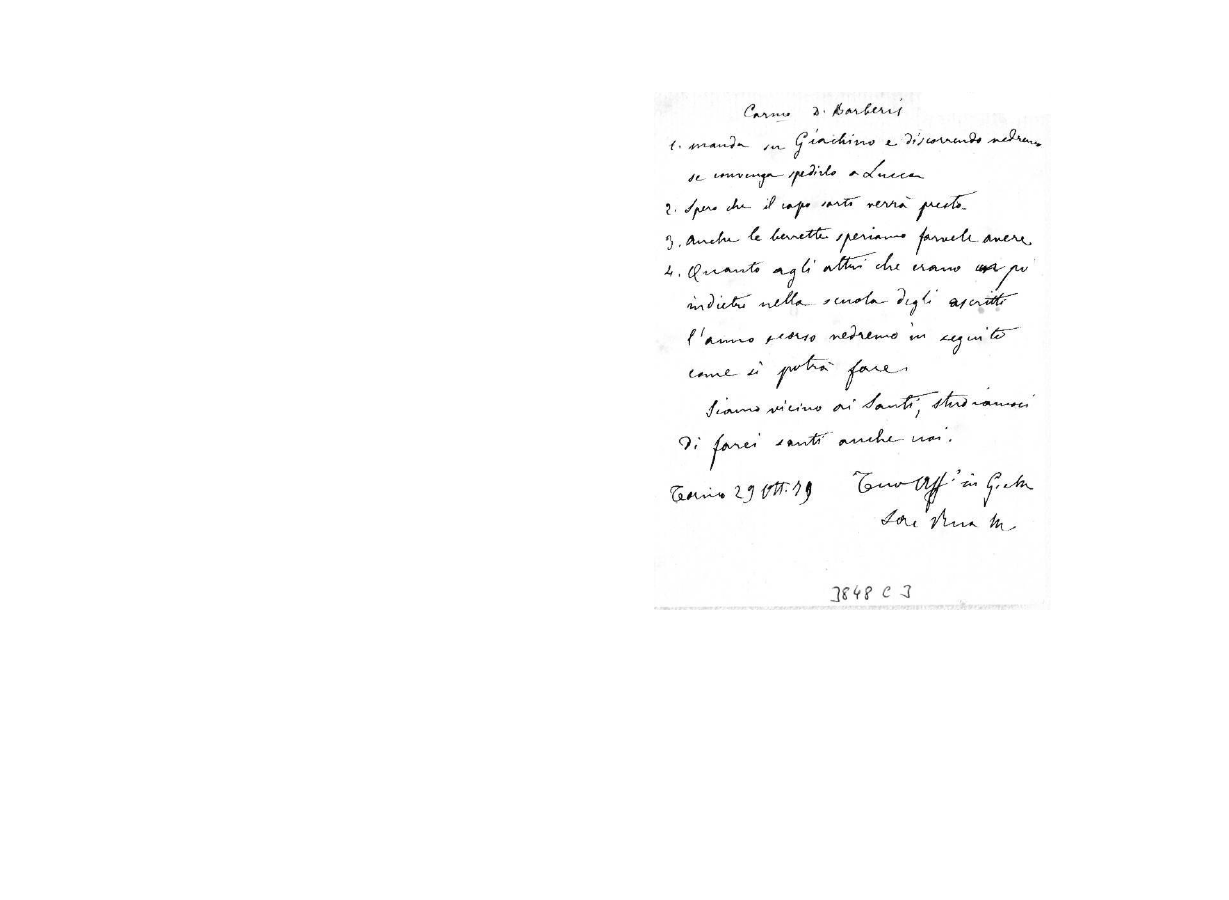 Carmo D. Barberis
1. manda su Giachino e discorrendo vedremo
se convenga spedirlo a Lucca
2. Spero che il capo sarto verrà presto.
3. Anche le berrette speriamo farvele avere.
4. Quanto agli altri che erano un po'
indietro nella scuola degli ascritti
l'anno scorso vedremo in seguito
come si potrà fare.
Siamo vicino ai Santi, studiamoci
di farci santi anche noi.
Torino 29 Ott. 79 Tuo Aff' in G. e M.
Sac Rua M
3848 C 3